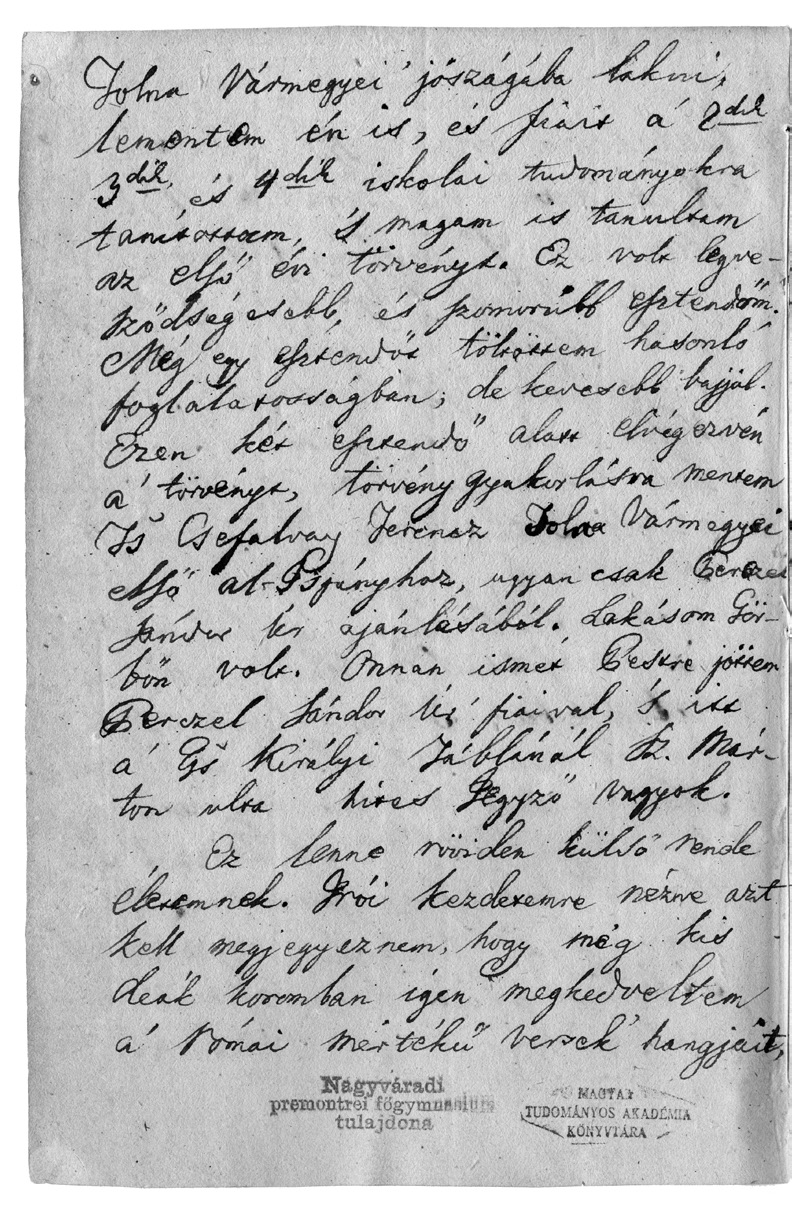 Tolna Vármegyei jószágába lakni,
lementem én is, és fiait a' 2dik
3dik, és 4dik iskolai tudományokra
tanítottam, 's magam is tanultam
az első évi törvényt. Ez volt legve-
sződségesebb, és szomorúbb esztendőm.
Még egy esztendőt töltöttem hasonló
foglalatosságban; de kevesebb bajjal.
Ezen két esztendő alatt elvégezvén
a' törvényt, törvény gyakorlásra mentem
Ts Csefalvay Ferencz Tolna Vármegyei
első al-Ispányhoz, ugyan csak Perczel
Sándor Úr ajánlásából. Lakásom Gör-
bőn volt. Onnan ismét Pestre jöttem
Perczel Sándor Úr' fiaival, 's itt
a' Kir. Királyi Táblánál Sz. Már-
ton olta hites Jegyző vagyok.
Ez lenne röviden külső rende
életemnek. Írói kezdetemre nézve azt
kell megjegyeznem, hogy még kis
deák koromban igen megkedveltem
a' Római mértékű versek' hangjait,
Nagyváradi
premontrei főgymnasium
tulajdona
MAGYAR
TUDOMÁNYOS AKADÉMIA
KÖNYVTÁRA